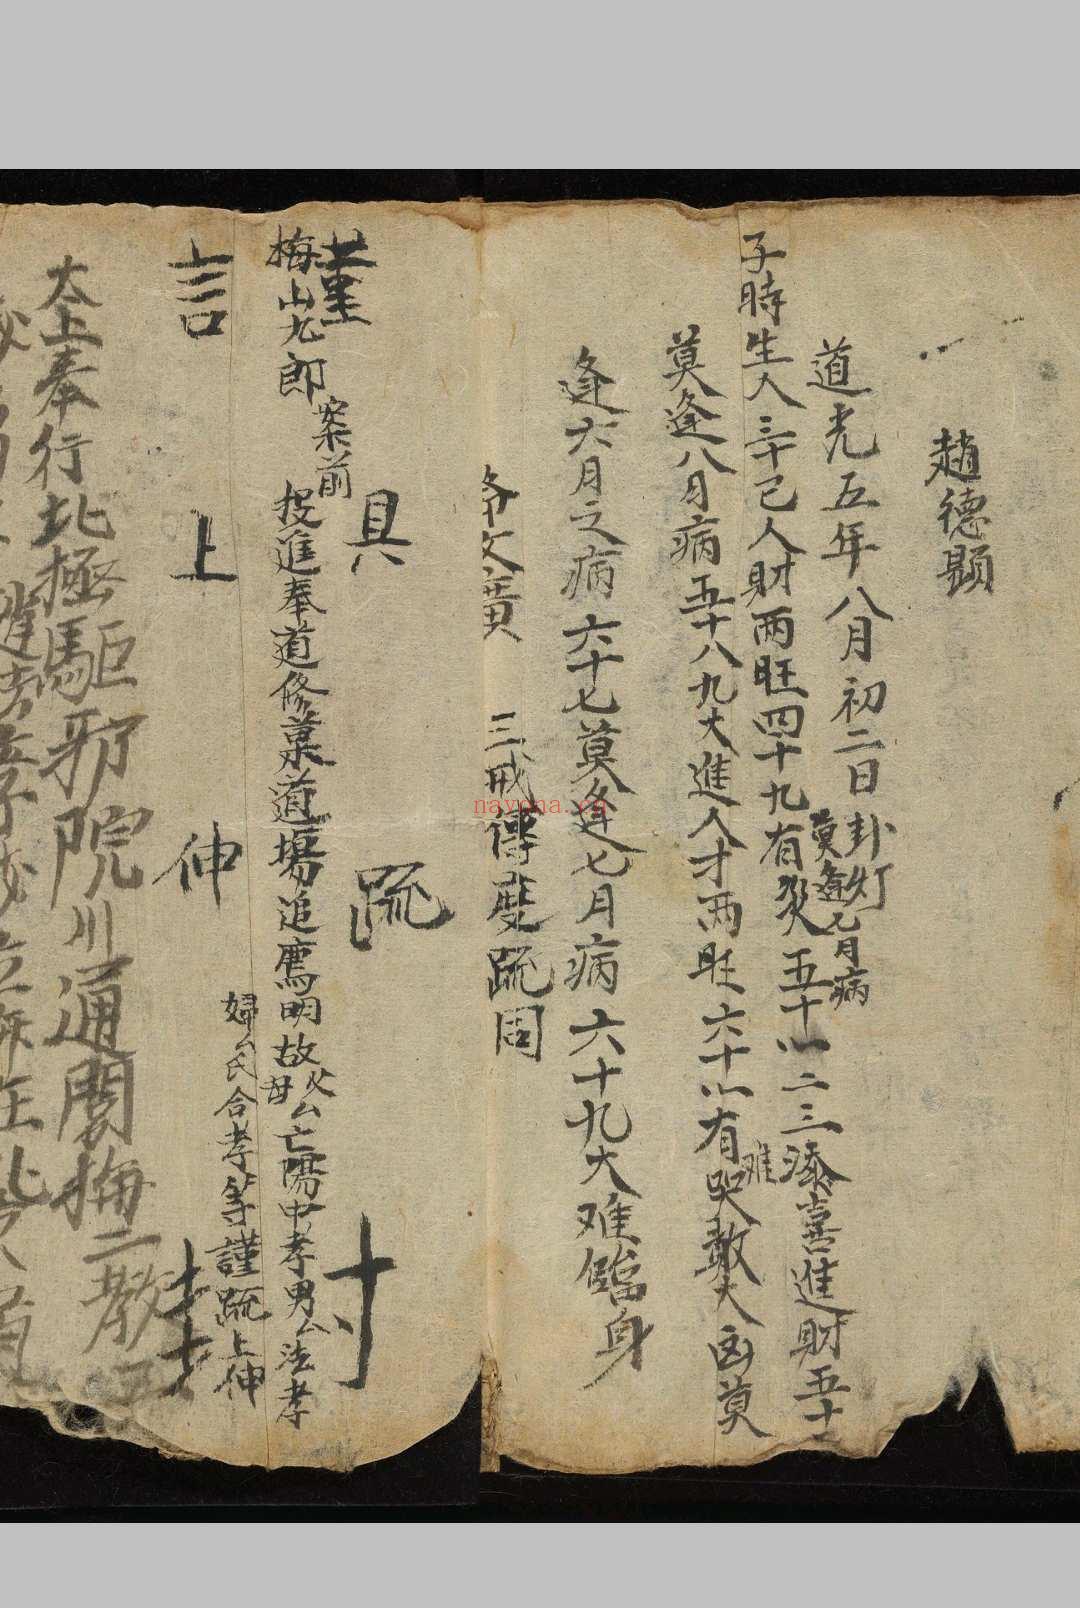 趙德顯
道光五年八月初二日卦灯
莫逢七月病
子時生人三十己人財兩旺四十九有災五十一二三添喜進財五十
莫逢八月病五十八九大進人才兩旺六十八有哭敢大凶莫
难
逢六月之病六十七莫逢七月病六十九大难臨身
文廣 三戒傳度疏同
謹 具 疏 封
梅山九郎案前 投進奉道修菓道場追薦明故父母厶亡陽中孝男厶法孝
婦厶氏合孝等謹疏上伸
言 上 伸
太上奉行北極驅邪院川通閭梅二教